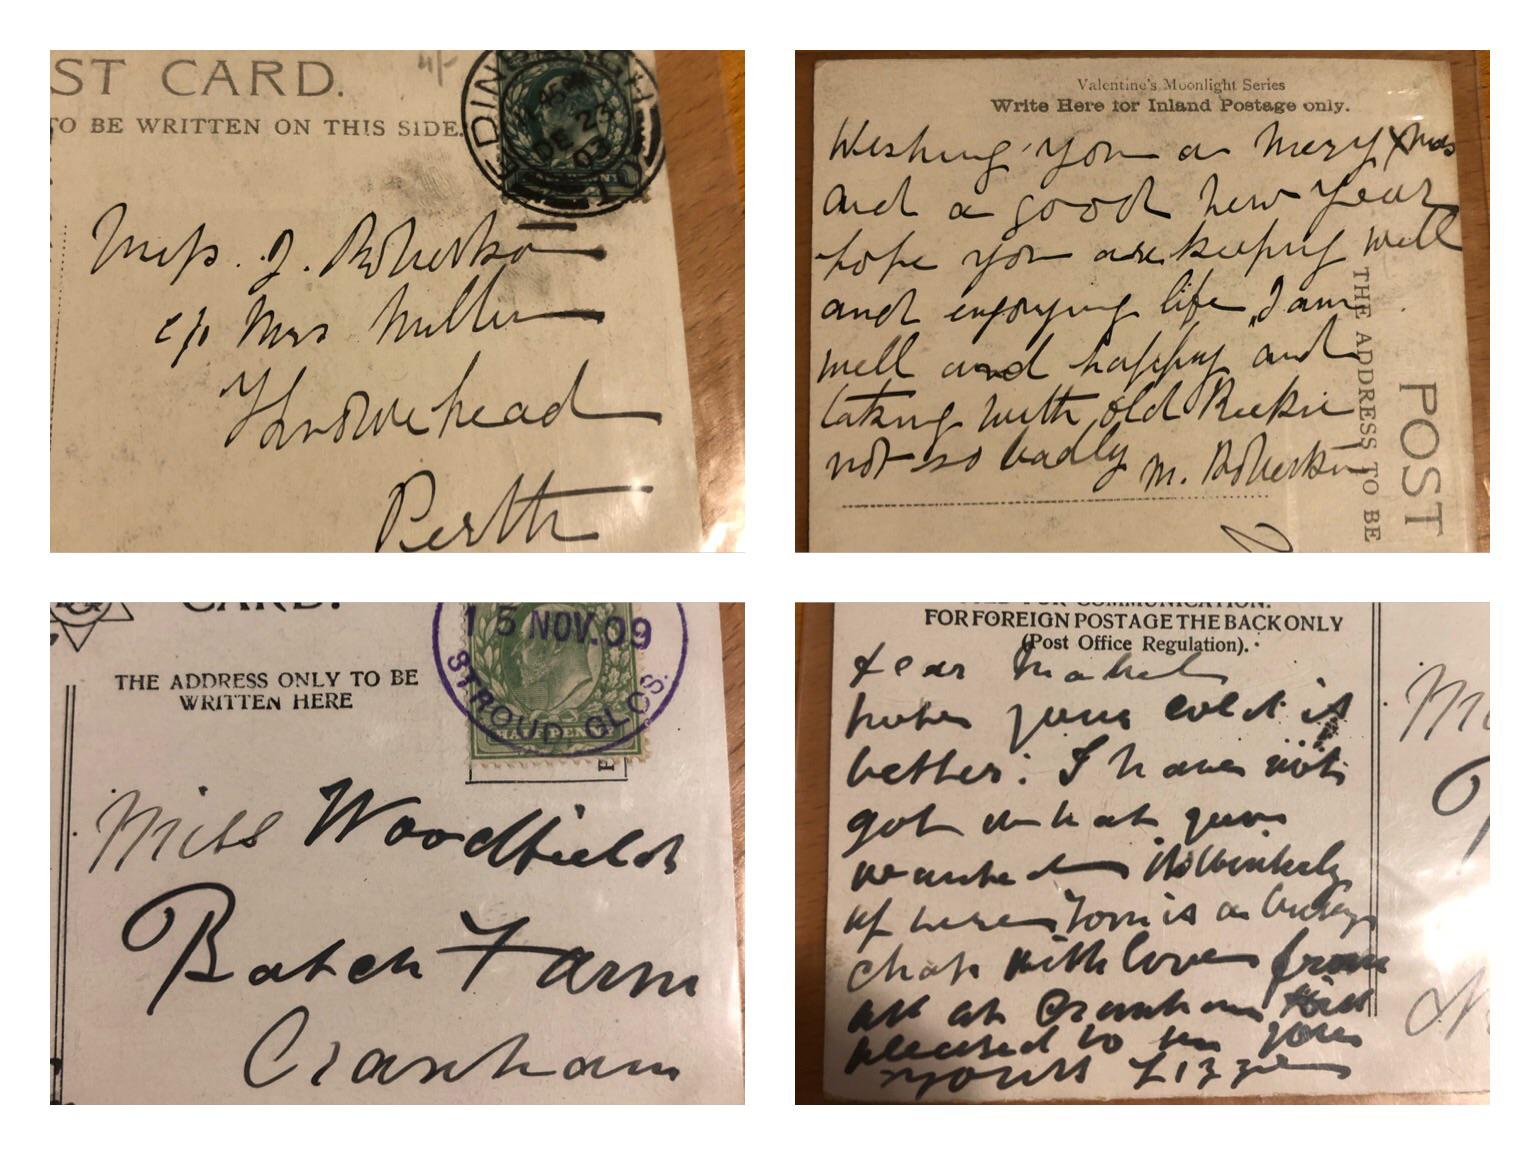 ST CARD.
TO BE WRITTEN ON THIS SIDE.
EDINBURGH
DE 23
03
Miss J. Robertson
c/o Mrs Miller
Knowehead
Perth
Valentine's Moonlight Series
Write Here for Inland Postage only.
Wishing you a Merry Xmas
and a good New Year
hope you are keeping well
and enjoying life, I am
well and happy and
taking with old Reekie
not so badly M. Robertson
POST
THE ADDRESS TO BE
CARD.
THE ADDRESS ONLY TO BE
WRITTEN HERE
15 NOV.09
STROUD. GLOS.
HALFPENNY
Miss Woodfield
Batch Farm
Cranham
FOR COMMUNICATION.
FOR FOREIGN POSTAGE THE BACK ONLY
(Post Office Regulation).
Dear Mabel
hope your cold is
better: I have not
got what you
wanted
of here Tom is a
chap with love from
all at Cranham
pleased to see you
yours Lizzie